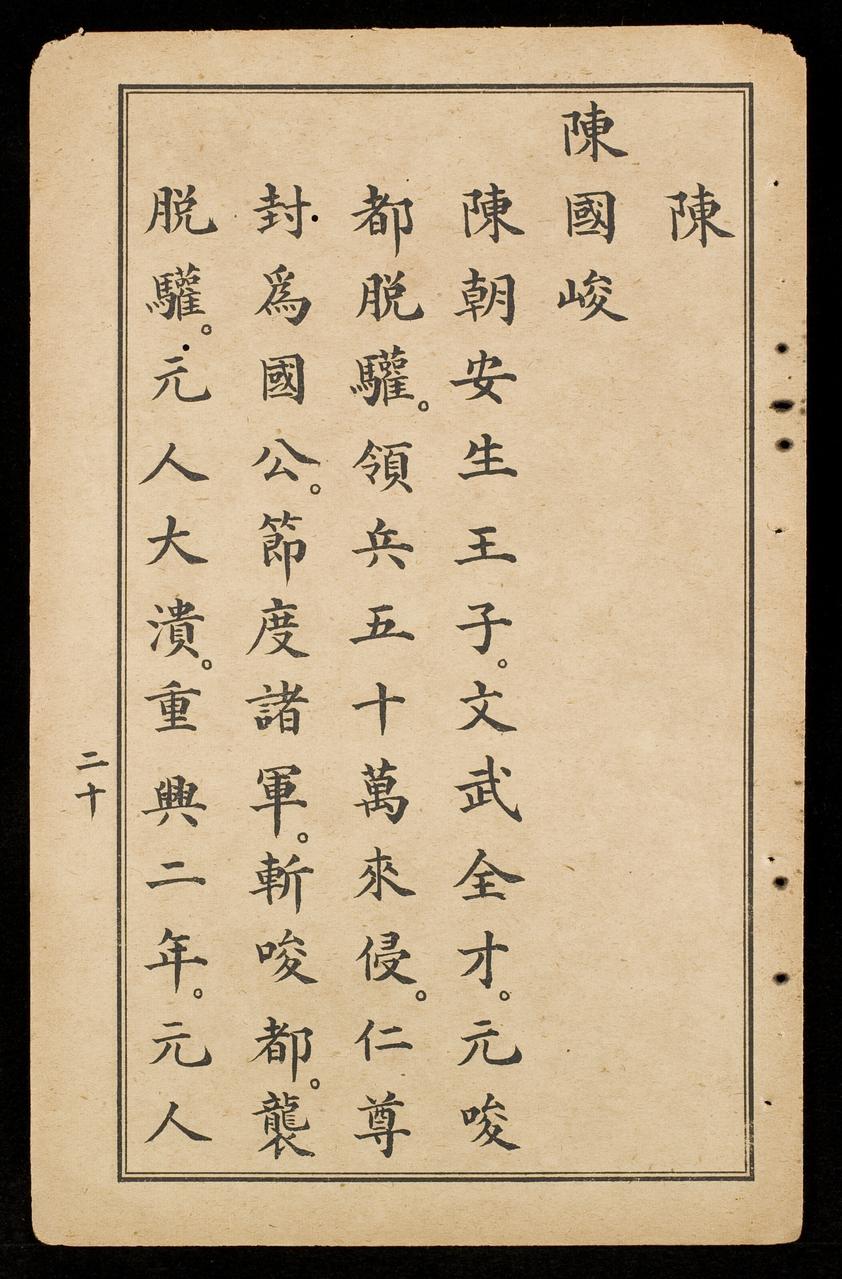 陳
陳國峻
陳朝安生王子。文武全才。元唆
都脱驩。領兵五十萬來侵。仁尊
封爲國公。節度諸軍。斬唆都。襲
脱驩。元人大潰。重興二年。元人
二十